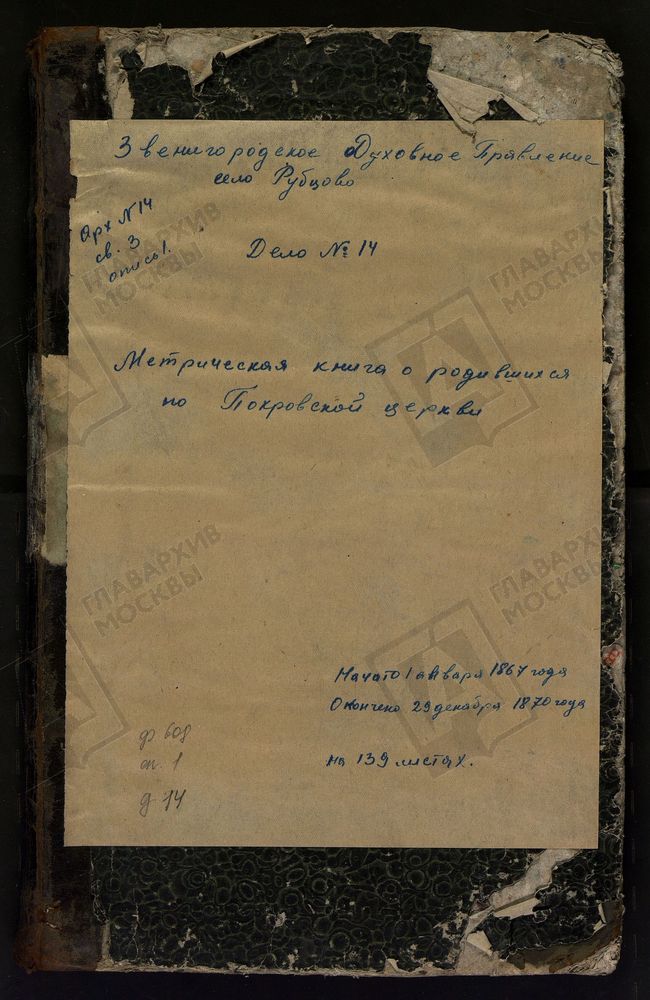 Звенигородское Духовное Правление
село Рубцово
Арх №14
св. 3
опись 1.
Дело № 14
ГЛАВАРХИВ
МОСКВЫ
ГЛАВАРХИВ
МОСКВЫ
Метрическая книга о родившихся
по Покровской церкви
ГЛАВАРХИВ
МОСКВЫ
ГЛАВАРХИВ
МОСКВЫ
Начато 1 января 1867 года
Окончено 29 декабря 1870 года
на 139 листах.
ф 609
оп. 1
д 14